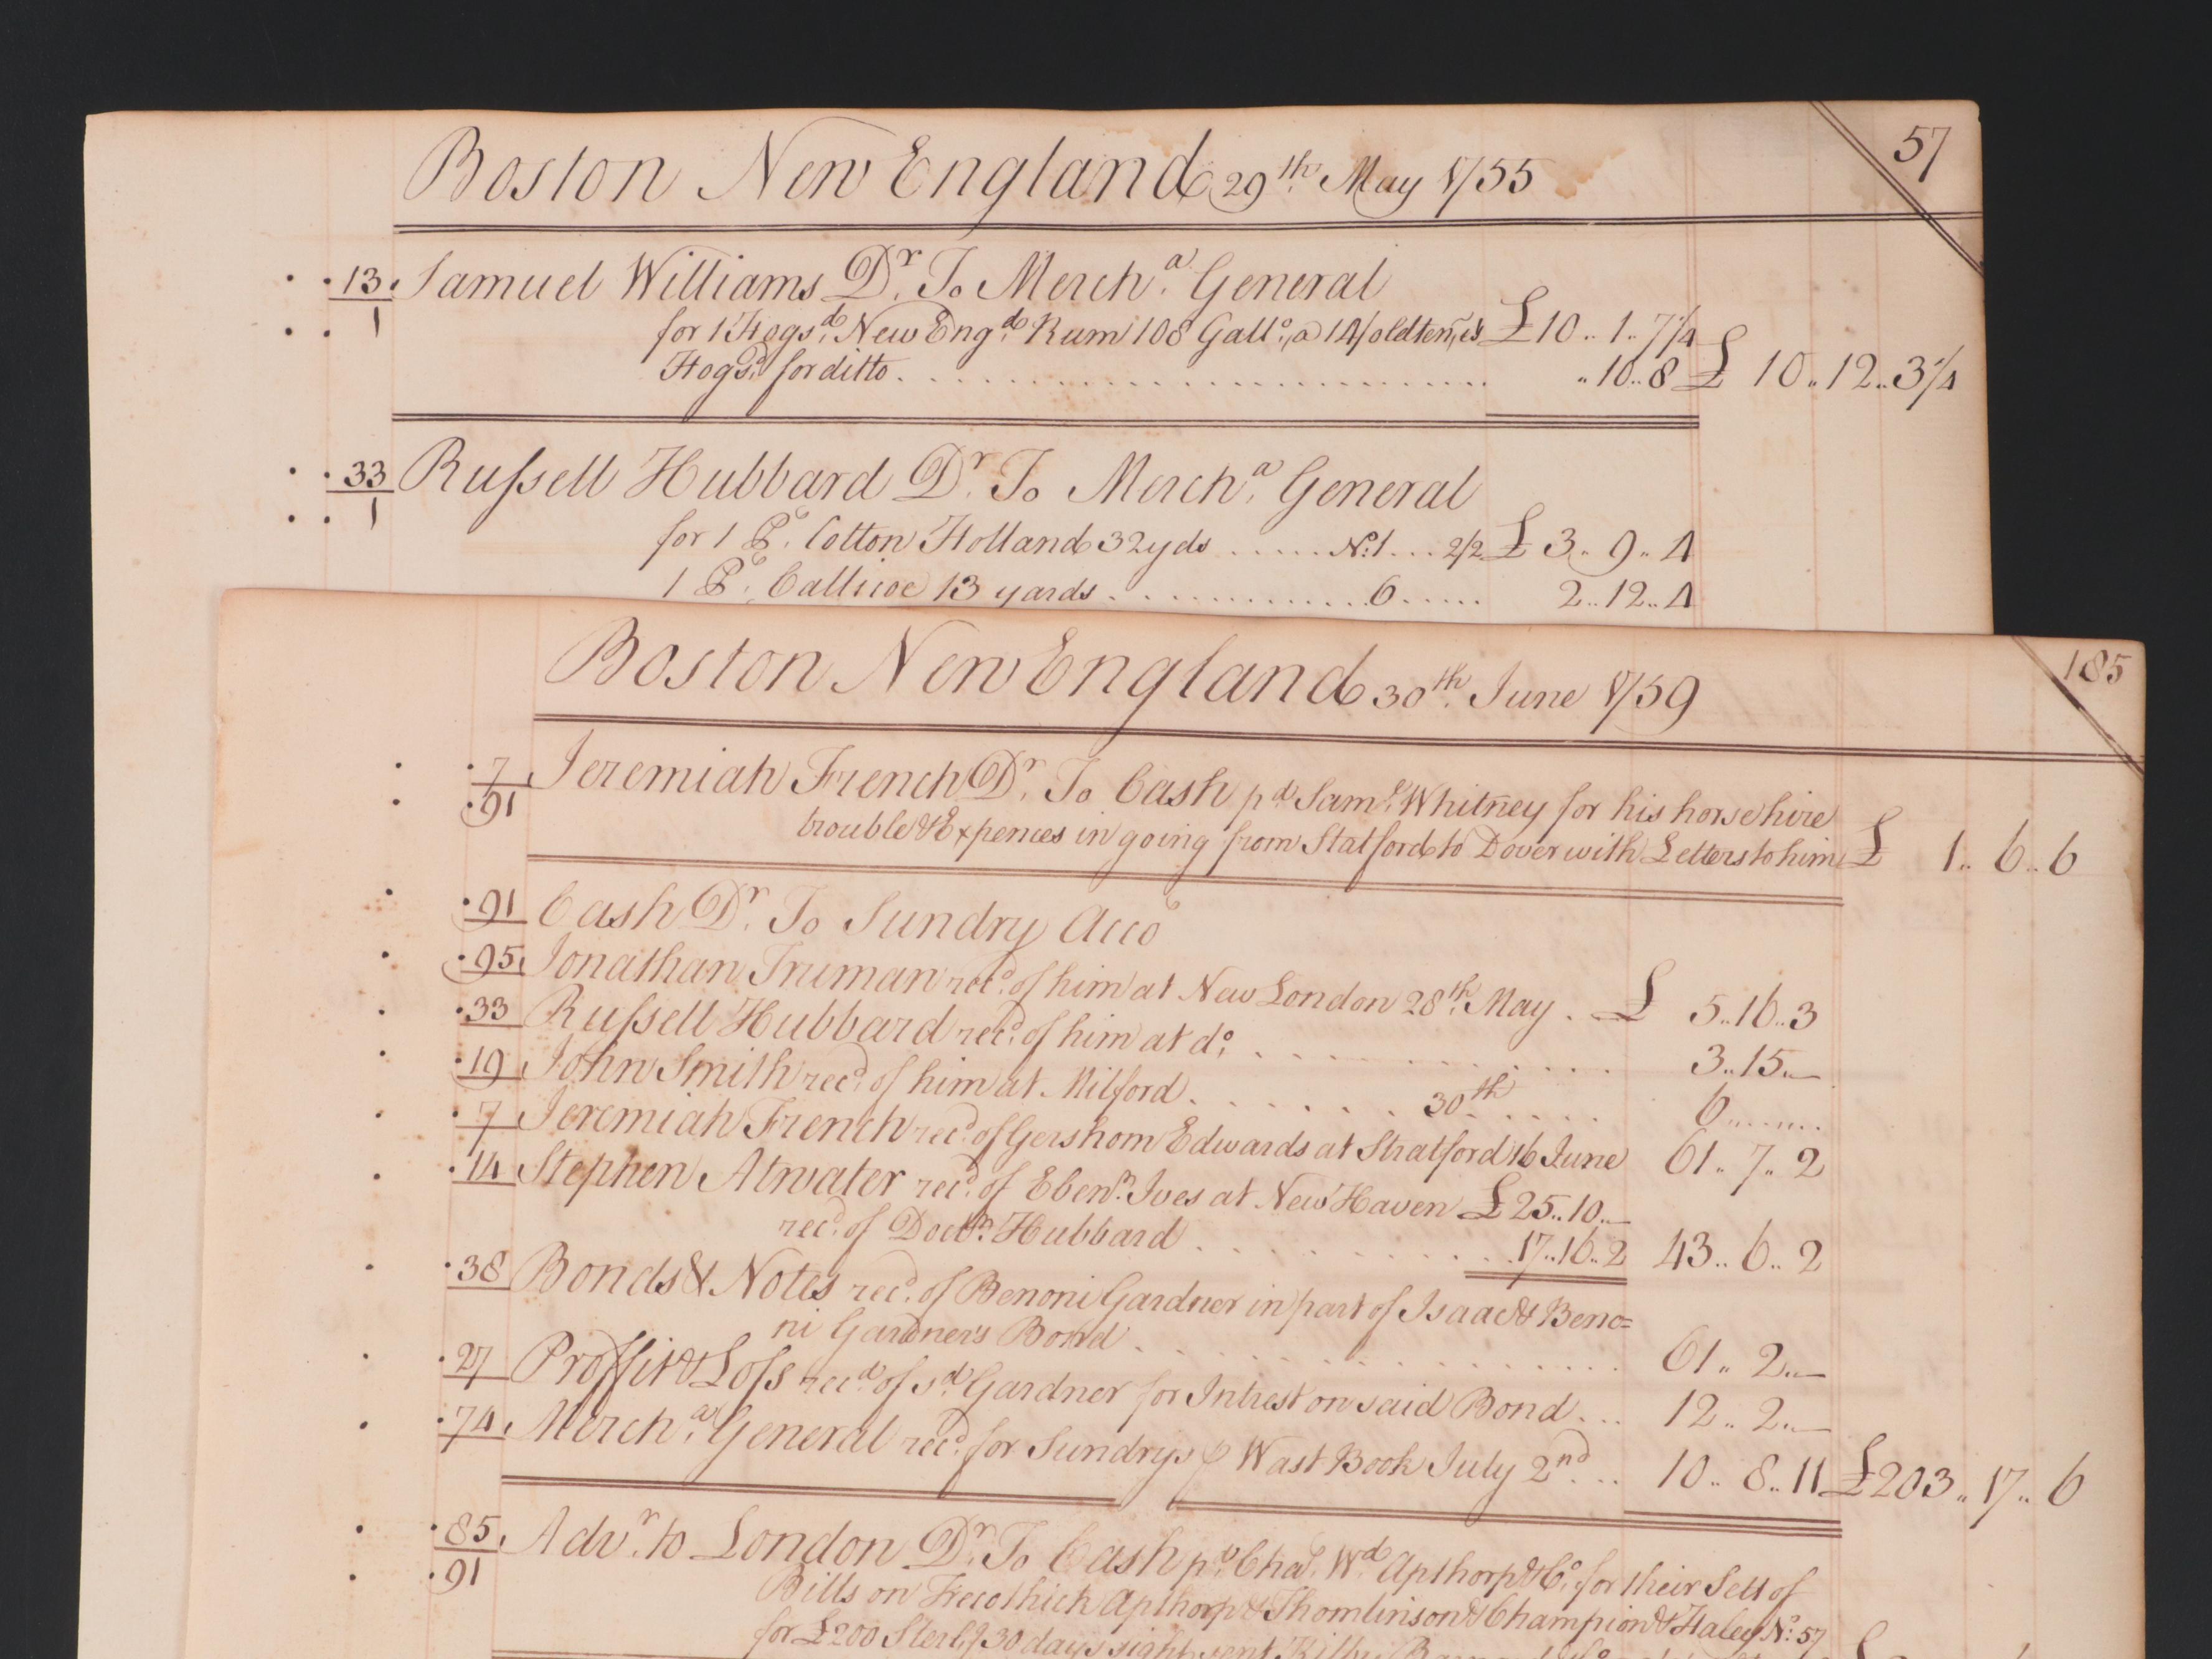 Boston New England 29th. May 1755
57
13 Samuel Williams Dr. To Mercha. General
1 for 1 Hogsd. New Engd. Rum 108 Gallo. a 14/ old tenr. is £10..1..7 1/4
Hogsd. for ditto . . . . . . . . . ..10..8 £ 10..12..3 1/4
33 Russell Hubbard Dr. To Mercha. General
1 for 1 Pe. Cotton Holland 32 yds ..... No.1 ... 2/2 £3..9..4
1 Pe. Callicoe 13 yards . . . . . . . 6 ..... 2..12..4
Boston New England 30th. June 1759
185
7 Jeremiah French Dr. To Cash pd. Saml. Whitney for his horse hire
91 trouble & Expences in going from Statford to Dover with Letters to him £ 1..6..6
91 Cash Dr. To Sundry Acco
95 Jonathan Truman recd. of him at New London 28th. May . £ 5..16..3
33 Russell Hubbard recd. of him at do. . . . . . . . . 3..15..—
19 John Smith recd. of him at Milford . . . . . . 30th . . . . 6.......
7 Jeremiah French recd. of Gershom Edwards at Stratford 16 June 61..7..2
14 Stephen Atwater recd. of Ebenr. Ives at New Haven £25..10..—
recd. of Doctr. Hubbard . . . . . . . . . 17..16..2 43..6..2
38 Bonds & Notes recd. of Benoni Gardner in part of Isaac & Beno=
ni Gardner's Bond . . . . . . . . . . . 61..2..—
27 Proffit & Loss recd. of sd. Gardner for Intrest on said Bond ... 12..2..—
74 Mercha. General recd. for Sundrys p Wast Book July 2nd. .. 10..8..11 £203..17..6
85 Advr. to London Dr. To Cash pd. Chas. Wd. Apthorp & Co. for their Sett of
91 Bills on Trecothick Apthorp & Thomlinson & Champion & Haley No. 57
for £200 Sterlg. 30 days sight sent Kilby